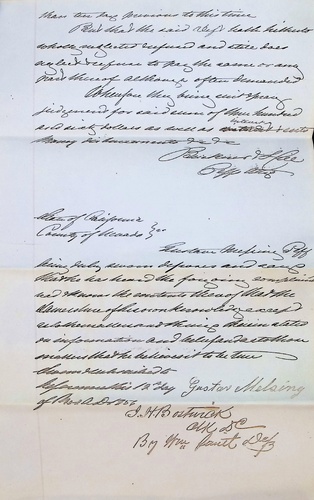 than ten day previous to this time
But that the said Deft hath hitherto
wholly neglected refused and still does
neglect refuse to pay the same or any
part thereof although often demanded
Wherefore they bring suit & pray
judgment for said sum of three hundred
and sixty dollars as well as interest & costs
Pltffs Attys
State of California
County of Nevada } ss
Gustav Melsing Pltff
being duly sworn deposes and says
that he has heard the foregoing complaint
and knows the contents thereof that the
same is true of his own knowledge except
as to the matters and things therein stated
on information and belief and as to those
matters that he believes it to be true
Sworn & subscribed to
before me this 12th day Gustav Melsing
of Nov A.D. 1856
J. H Bostwick
Clk D C
By Wm Smith Dep